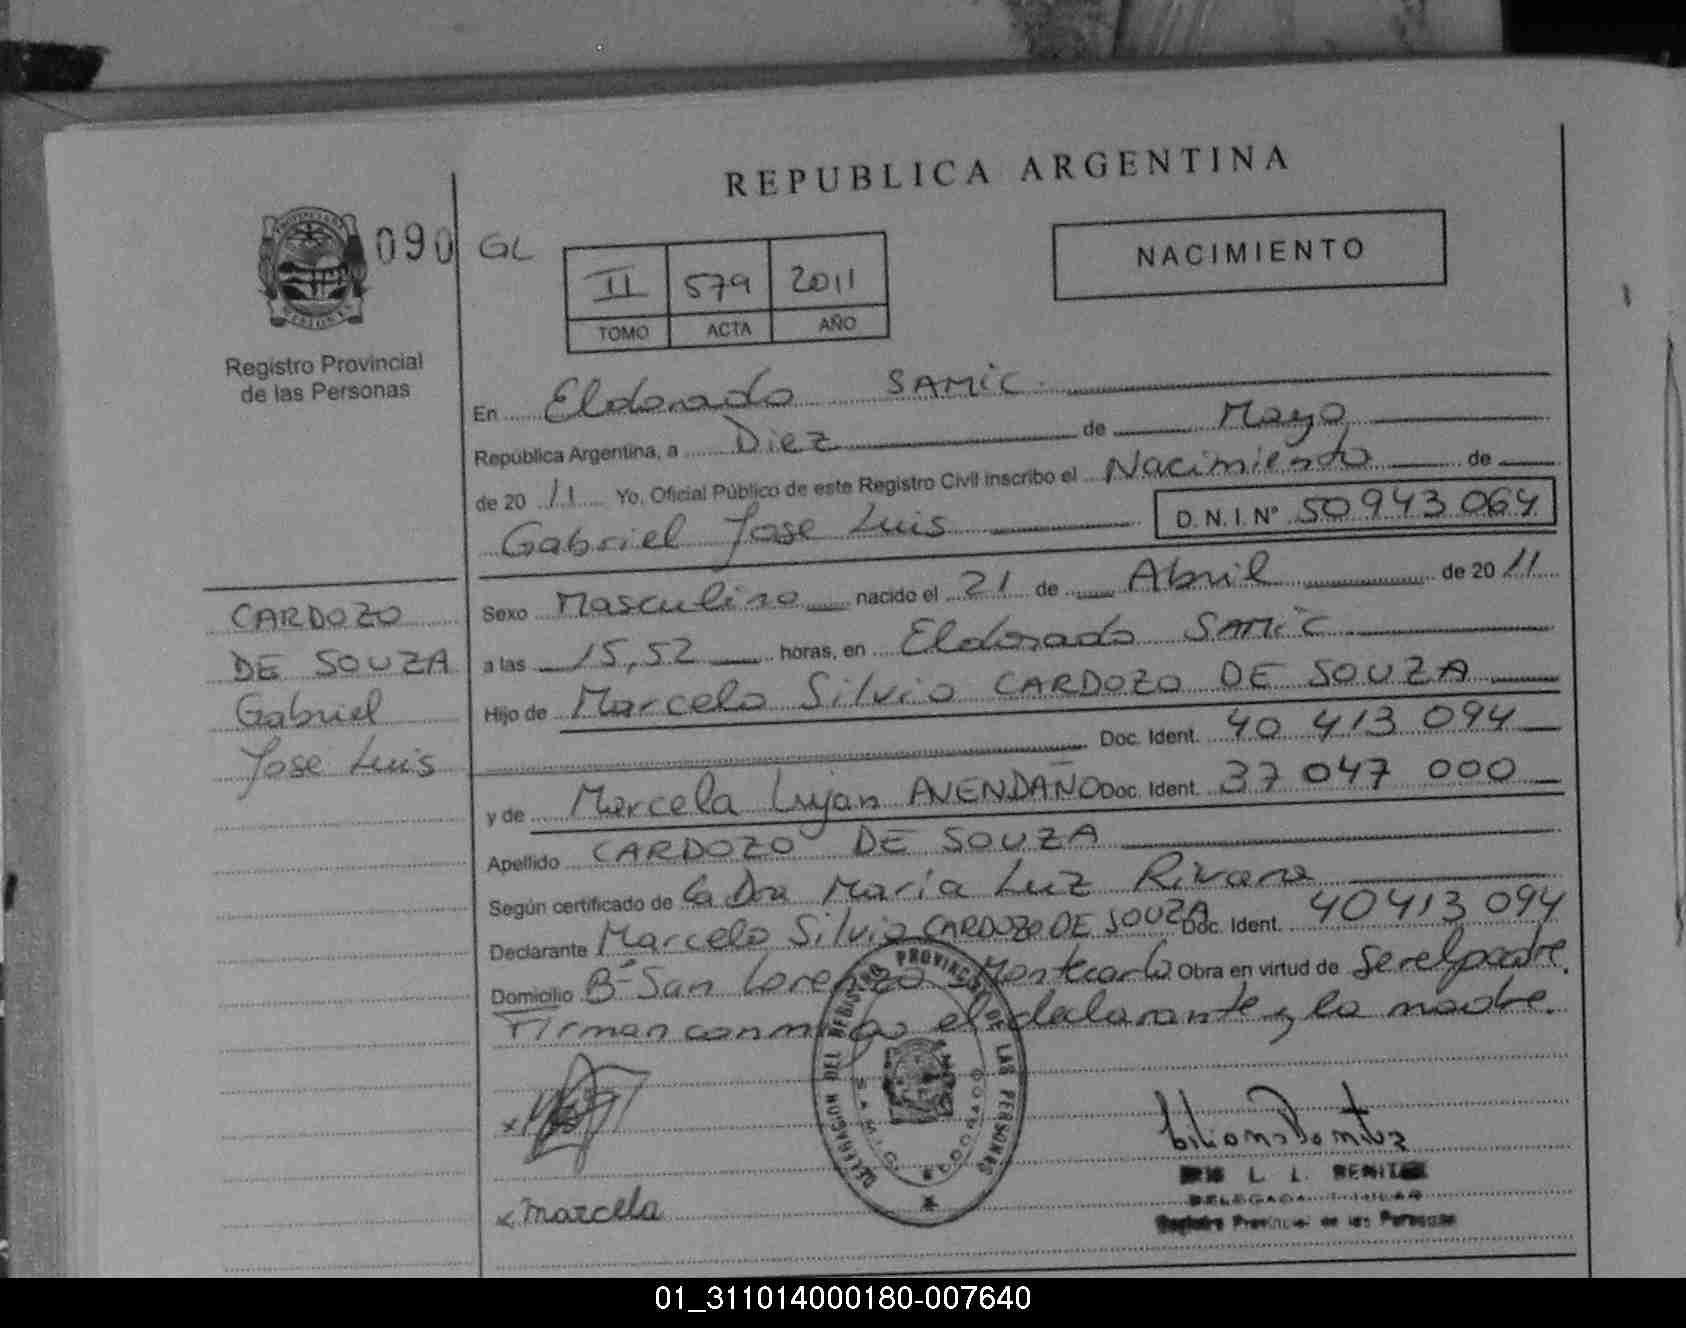 REPUBLICA ARGENTINA
PROVINCIA
MISIONES
090 GL
II 579 2011
TOMO ACTA AÑO
NACIMIENTO
Registro Provincial
de las Personas
En Eldorado SAMIC
República Argentina, a Diez de Mayo
de 20 11 Yo, Oficial Público de este Registro Civil inscribo el Nacimiento de
Gabriel Jose Luis D.N.I. Nº 50943064
CARDOZO
DE SOUZA
Gabriel
Jose Luis
Sexo Masculino nacido el 21 de Abril de 20 11
a las 15,52 horas, en Eldorado SAMIC
Hijo de Marcelo Silvio CARDOZO DE SOUZA
Doc. Ident. 40 413 094
y de Marcela Lujan AVENDAÑO Doc. Ident. 37 047 000
Apellido CARDOZO DE SOUZA
Según certificado de la Dra Maria Luz Rivara
Declarante Marcelo Silvio CARDOZO DE SOUZA Doc. Ident. 40413094
Domicilio Bº San Lorenzo Montecarlo Obra en virtud de ser el padre.
Firman conmigo el declarante y la madre.
DELEGACION DEL REGISTRO PROVINCIAL DE LAS PERSONAS
SAMIC ELDORADO
x
x marcela
L. I. BENITEZ
DELEGADA TITULAR
Registro Provincial de las Personas
01_311014000180-007640